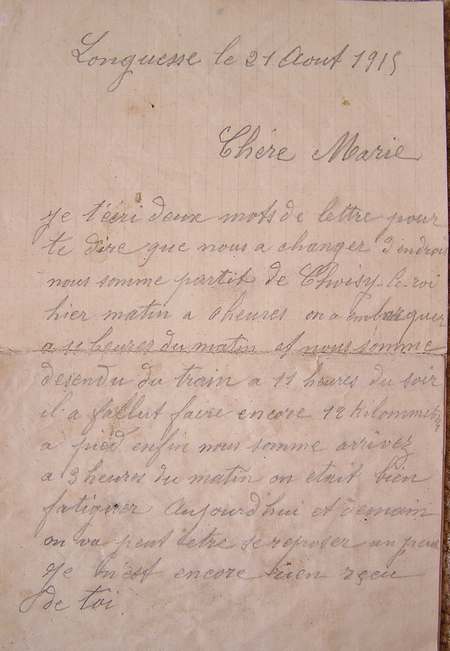 Longuesse le 21 Aout 1915
Chére Marie
Je t'écri deux mots de lettre pour
te dire que nous a changer d'endroit
nous somme partit de Choisy-le-roi
hier matin a heures on a embarquer
a 11 heures du matin et nous somme
desendu du train a 11 heures du soir
il a fallut faire encore 12 kilommetre
a pied enfin nous somme arrivez
a 3 heures du matin on etait bien
fatiguer Aujourd'hui et demain
on va peut être se reposer un peu
Je n'est encore rien rçeu
de toi